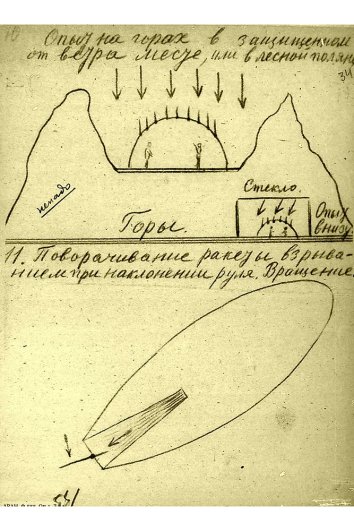 10 Опыт на горах в защищенном
от ветра месте, или в лесной поляне
34
ненадо
Стекло.
Горы.
Опыт
внизу.
11. Поворачивание ракеты взрыва-
нием при наклонении руля. Вращение.